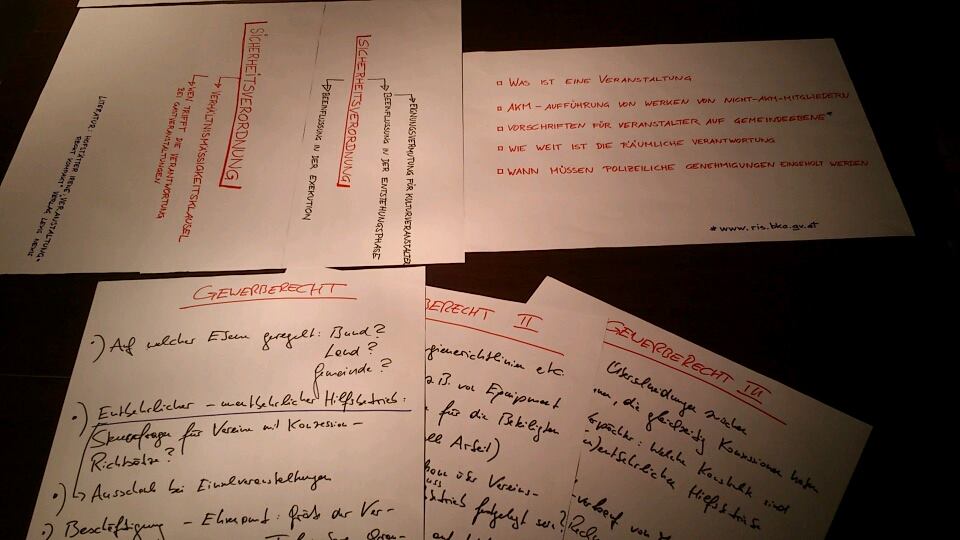 SICHERHEITSVERORDNUNG
VERHÄLTNISMÄSSIGKEITSKLAUSEL
WEN TRIFFT DIE VERANTWORTUNG
BEI GASTVERANSTALTUNGEN
LITERATUR: IRENE "VERANSTALTUNG"
RECHT KOMPAKT" VERLAG
SICHERHEITSVERORDNUNG
EIGNUNGSVERMUTUNG FÜR KULTURVERANSTALTER
BEEINFLUSSUNG IN DER ENTSTEHUNGSPHASE
BEEINFLUSSUNG IN DER EXEKUTION
WAS IST EINE VERANSTALTUNG
AKM - AUFFÜHRUNG VON WERKEN VON NICHT-AKM-MITGLIEDERN
VORSCHRIFTEN FÜR VERANSTALTER AUF GEMEINDEEBENE*
WIE WEIT IST DIE RÄUMLICHE VERANTWORTUNG
WANN MÜSSEN POLIZEILICHE GENEHMIGUNGEN EINGEHOLT WERDEN
* www.ris.bka.gv.at
GEWERBERECHT
•) Auf welcher Ebene geregelt: Bund?
Land?
Gemeinde?
•) Entbehrlicher - unentbehrlicher Hilfsbetrieb:
Steuerfragen für Vereine mit Konzession -
Richtsätze?
•) Ausschank bei Einzelveranstaltungen
•) Beschäftigung - Ehrenamt: Größe der Ver-
BERECHT II
gienerichtlinien etc.
z.B. von Equipment
für die Beteiligten
Arbeit)
oder Vereins-
festgelegt sein?
GEWERBERECHT III
Überschneidungen zwischen
die gleichzeitig Konzessionen haben
welche Konstrukte sind
entbehrlicher Hilfsbetriebe